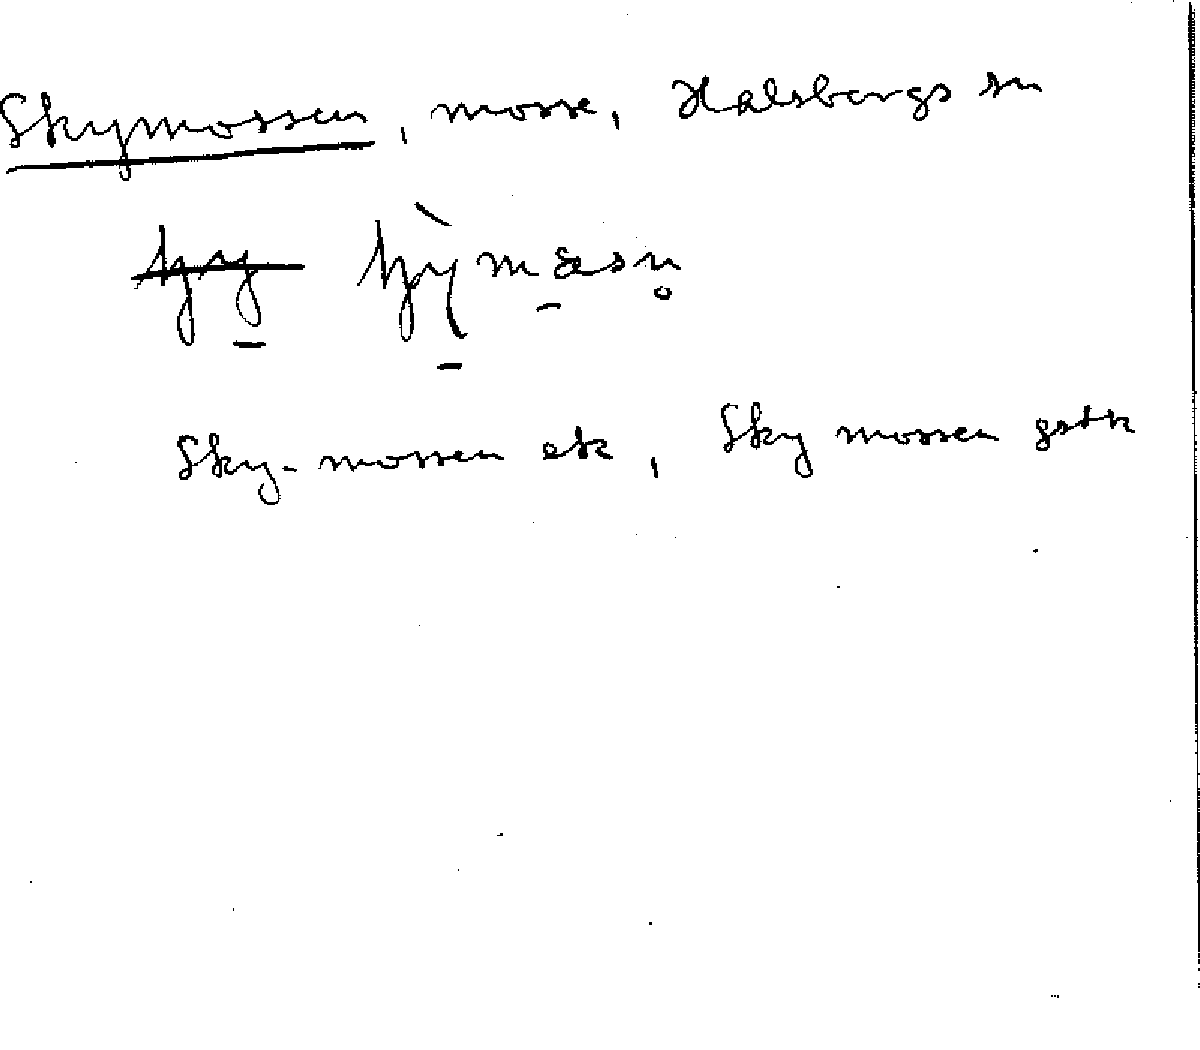 Skymossen, mosse, Halsbergs sn
Sky-mossen ek, Sky mossen gstk